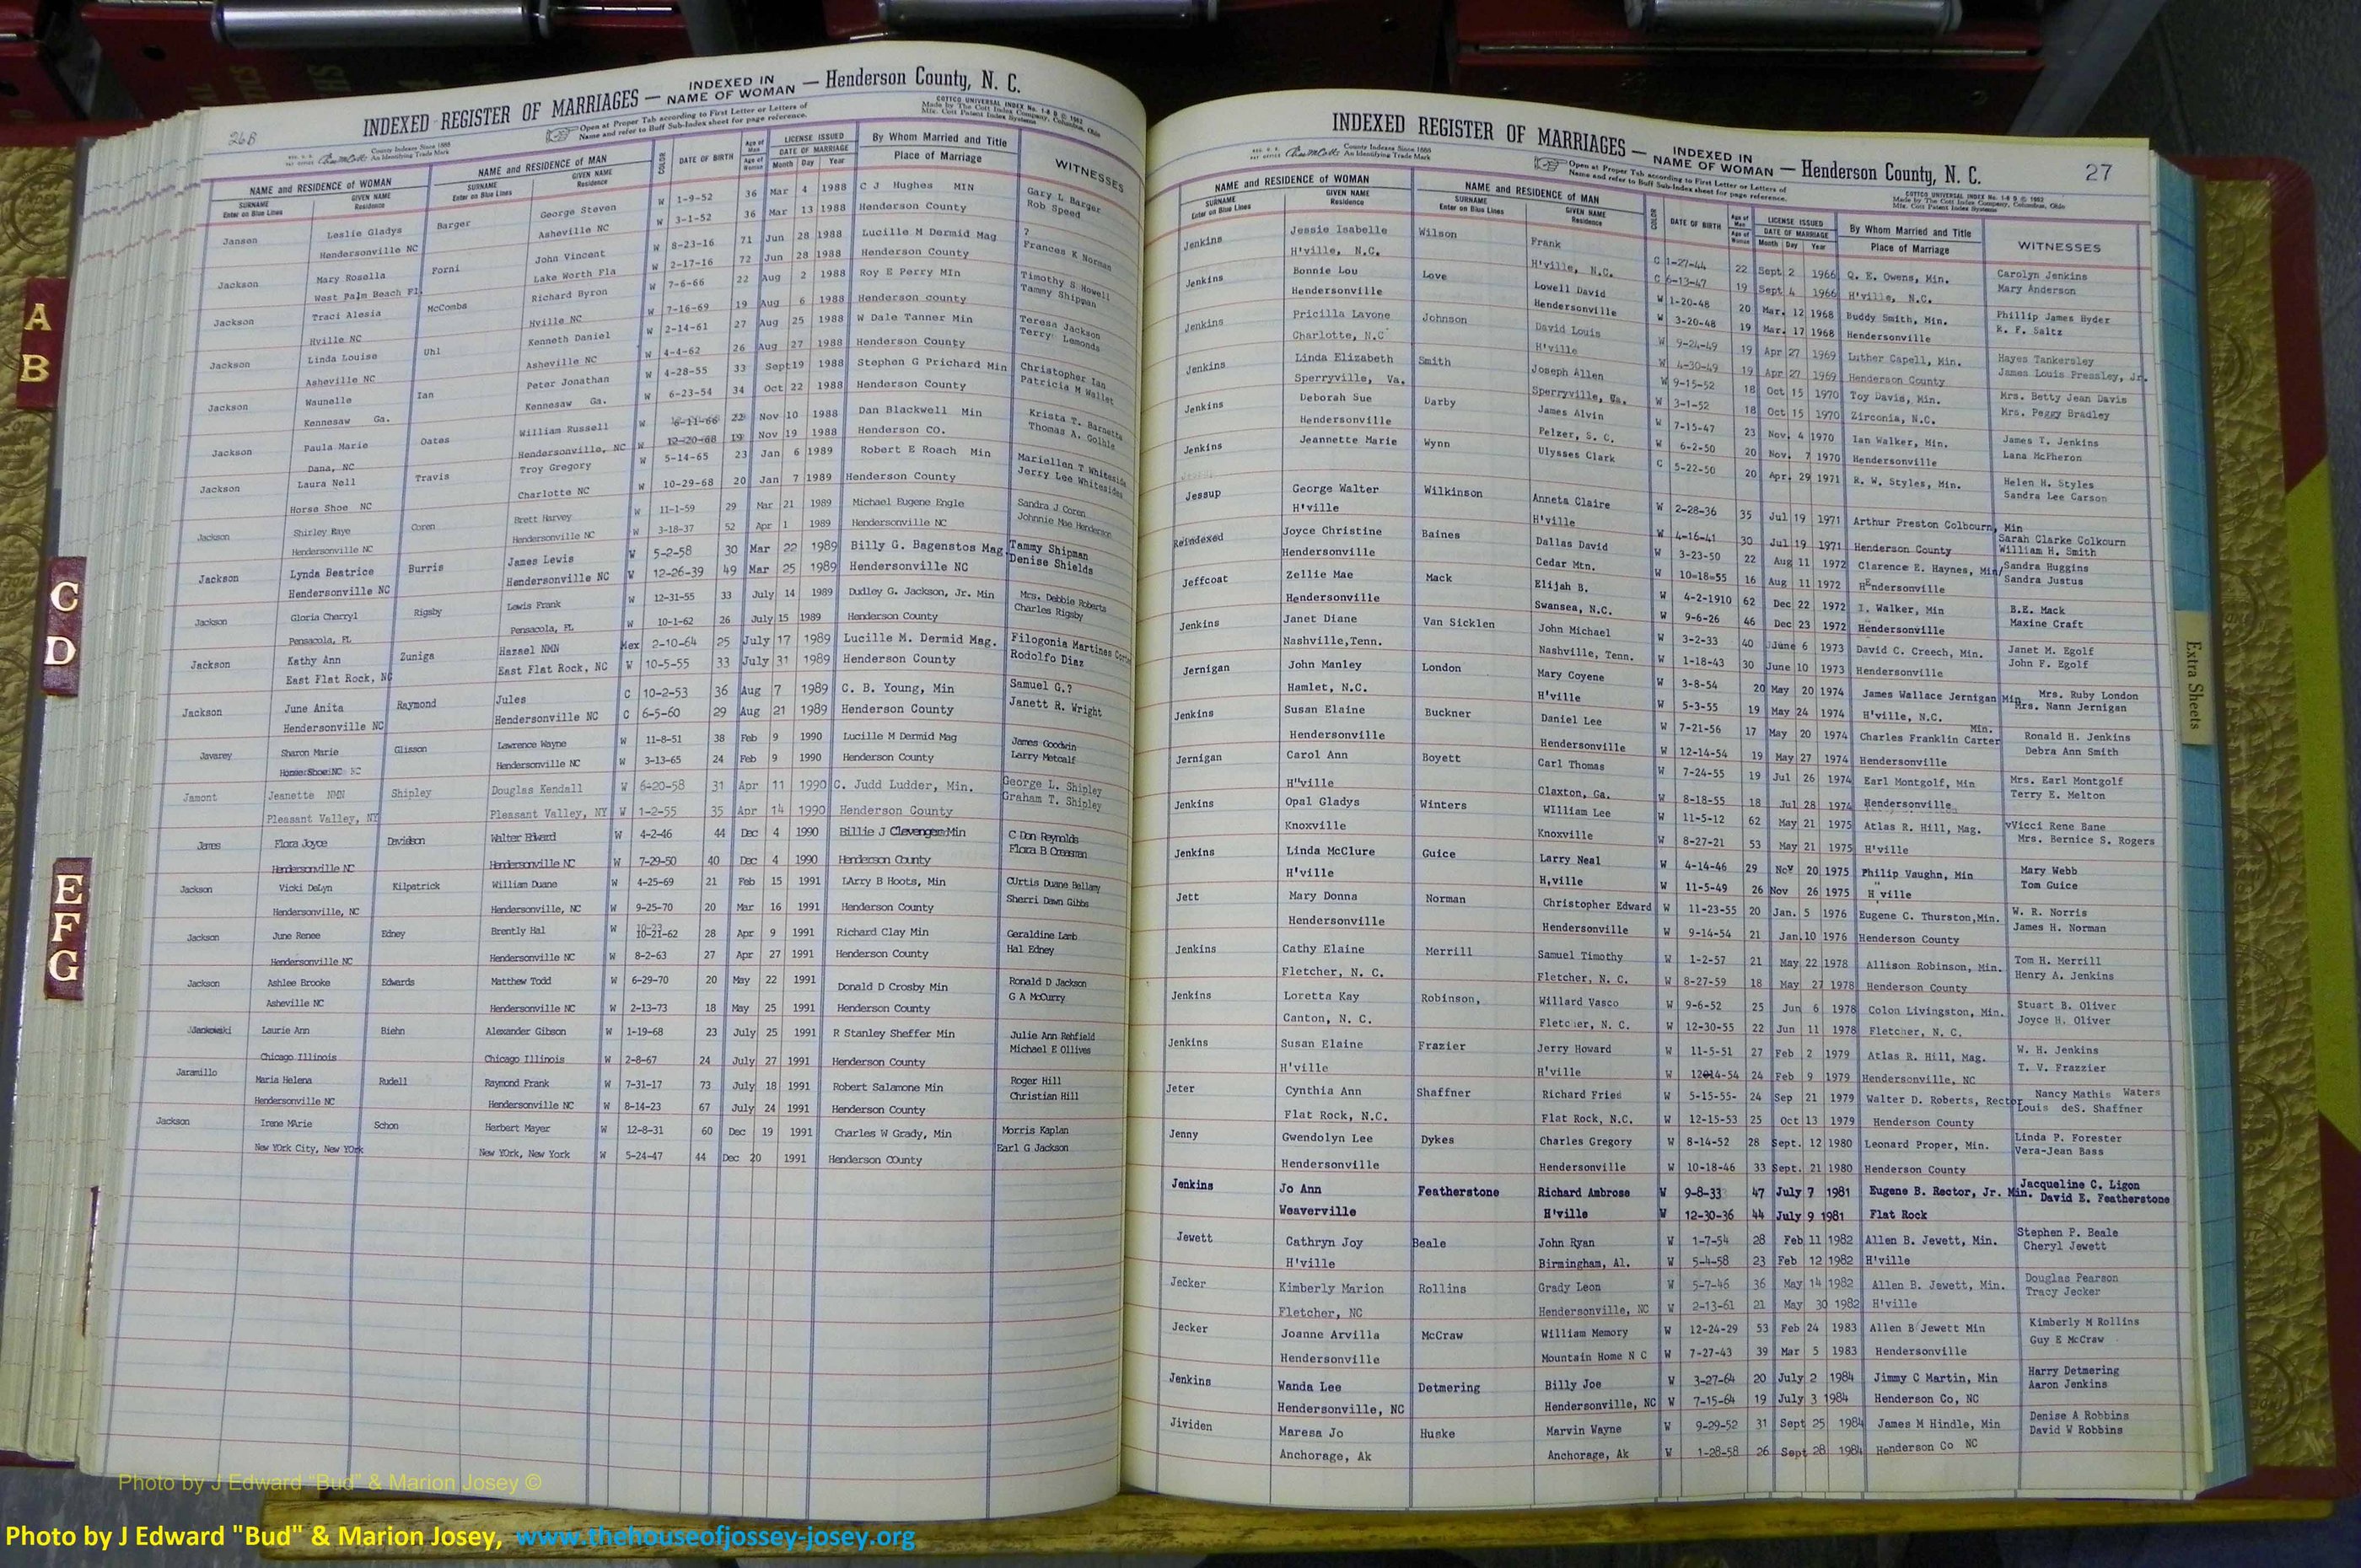 26B
INDEXED REGISTER OF MARRIAGES — INDEXED IN NAME OF WOMAN — Henderson County, N. C.
Open at Proper Tab according to First Letter or Letters of
Name and refer to Buff Sub-Index sheet for page reference.
COTTCO UNIVERSAL INDEX No. 1-8 D © 1962
Made by The Cott Index Company, Columbus, Ohio
County Indexes Since 1888
An Identifying Trade Mark
NAME and RESIDENCE of WOMAN NAME and RESIDENCE OF MAN COLOR DATE OF BIRTH Age of Man LICENSE ISSUED By Whom Married and Title WITNESSES
SURNAME GIVEN NAME SURNAME GIVEN NAME Age of Woman DATE OF MARRIAGE Place of Marriage
Enter on Blue Lines Residence Enter on Blue Lines Residence Month Day Year
Janson Leslie Gladys Barger George Steven W 1-9-52 36 Mar 4 1988 C J Hughes MIN Gary L Barger
Hendersonville NC Asheville NC W 3-1-52 36 Mar 13 1988 Henderson County Rob Speed
Jackson Mary Rosella Forni John Vincent W 8-23-16 71 Jun 28 1988 Lucille M Dermid Mag ?
West Palm Beach Fl. Lake Worth Fla W 2-17-16 72 Jun 28 1988 Henderson County Frances K Norman
Jackson Traci Alesia McCombs Richard Byron W 7-6-66 22 Aug 2 1988 Roy E Perry MIn Timothy S Howell
Hville NC Hville NC W 7-16-69 19 Aug 6 1988 Henderson county Tammy Shipman
Jackson Linda Louise Uhl Kenneth Daniel W 2-14-61 27 Aug 25 1988 W Dale Tanner Min Teresa Jackson
Asheville NC Asheville NC W 4-4-62 26 Aug 27 1988 Henderson County Terry Lemonds
Jackson Waunelle Ian Peter Jonathan W 4-28-55 33 Sept 19 1988 Stephen G Prichard Min Christopher Ian
Kennesaw Ga. Kennesaw Ga. W 6-23-54 34 Oct 22 1988 Henderson County Patricia M Wallet
Jackson Paula Marie Oates William Russell W 6-11-66 22 Nov 10 1988 Dan Blackwell Min Krista T. Barnette
Dana, NC Hendersonville, NC W 12-20-68 19 Nov 19 1988 Henderson CO. Thomas A. Golhle
Jackson Laura Nell Travis Troy Gregory W 5-14-65 23 Jan 6 1989 Robert E Roach Min Mariellen T Whiteside
Horse Shoe NC Charlotte NC W 10-29-68 20 Jan 7 1989 Henderson County Jerry Lee Whitesides
Jackson Shirley Faye Coren Brett Harvey W 11-1-59 29 Mar 21 1989 Michael Eugene Engle Sandra J Coren
Hendersonville NC Hendersonville NC W 3-18-37 52 Apr 1 1989 Hendersonville NC Johnnie Mae Henderson
Jackson Lynda Beatrice Burris James Lewis W 5-2-58 30 Mar 22 1989 Billy G. Bagenstos Mag. Tammy Shipman
Hendersonville NC Hendersonville NC W 12-26-39 49 Mar 25 1989 Hendersonville NC Denise Shields
Jackson Gloria Cherryl Rigsby Lewis Frank W 12-31-55 33 July 14 1989 Dudley G. Jackson, Jr. Min Mrs. Debbie Roberts
Pensacola, FL Pensacola, FL W 10-1-62 26 July 15 1989 Henderson County Charles Rigsby
Jackson Kathy Ann Zuniga Hazael NMN Mex 2-10-64 25 July 17 1989 Lucille M. Dermid Mag. Filogonia Martines
East Flat Rock, NC East Flat Rock, NC W 10-5-55 33 July 31 1989 Henderson County Rodolfo Diaz
Jackson June Anita Raymond Jules C 10-2-53 36 Aug 7 1989 C. B. Young, Min Samuel G.?
Hendersonville NC Hendersonville NC C 6-5-60 29 Aug 21 1989 Henderson County Janett R. Wright
Javarey Sharon Marie Glisson Lawrence Wayne W 11-8-51 38 Feb 9 1990 Lucille M Dermid Mag James Goodwin
Horse Shoe NC Hendersonville NC W 3-13-65 24 Feb 9 1990 Henderson County Larry Metcalf
Jamont Jeanette NMN Shipley Douglas Kendall W 6-20-58 31 Apr 11 1990 C. Judd Ludder, Min. George L. Shipley
Pleasant Valley, NY Pleasant Valley, NY W 1-2-55 35 Apr 14 1990 Henderson County Graham T. Shipley
James Flora Joyce Davidson Walter Edward W 4-2-46 44 Dec 4 1990 Billie J Clevenger Min C Don Reynolds
Hendersonville NC Hendersonville NC W 7-29-50 40 Dec 4 1990 Henderson County Flora B Creasman
Jackson Vicki DeLyn Kilpatrick William Duane W 4-25-69 21 Feb 15 1991 LArry B Hoots, Min CUrtis Duane Bellamy
Hendersonville, NC Hendersonville, NC W 9-25-70 20 Mar 16 1991 Henderson County Sherri Dawn Gibbs
Jackson June Renee Edney Brently Hal W 10-21-62 28 Apr 9 1991 Richard Clay Min Geraldine Lamb
Hendersonville NC Hendersonville NC W 8-2-63 27 Apr 27 1991 Henderson County Hal Edney
Jackson Ashlee Brooke Edwards Matthew Todd W 6-29-70 20 May 22 1991 Donald D Crosby Min Ronald D Jackson
Asheville NC Hendersonville NC W 2-13-73 18 May 25 1991 Henderson County G A McCurry
Laurie Ann Biehn Alexander Gibson W 1-19-68 23 July 25 1991 R Stanley Sheffer Min Julie Ann Rehfield
Chicago Illinois Chicago Illinois W 2-8-67 24 July 27 1991 Henderson County Michael E Ollives
Jaramillo Maria Helena Rudell Raymond Frank W 7-31-17 73 July 18 1991 Robert Salamone Min Roger Hill
Hendersonville NC Hendersonville NC W 8-14-23 67 July 24 1991 Henderson County Christian Hill
Jackson Irene MArie Schon Herbert Mayer W 12-8-31 60 Dec 19 1991 Charles W Grady, Min Morris Kaplan
New YOrk City, New YOrk New York, New York W 5-24-47 44 Dec 20 1991 Henderson COunty Earl G Jackson
27
INDEXED REGISTER OF MARRIAGES — INDEXED IN NAME OF WOMAN — Henderson County, N. C.
County Indexes Since 1888
An Identifying Trade Mark
Open at Proper Tab according to First Letter or Letters of
Name and refer to Buff Sub-Index sheet for page reference.
COTTCO UNIVERSAL INDEX No. 1-8 D © 1962
Made by The Cott Index Company, Columbus, Ohio
NAME and RESIDENCE of WOMAN NAME and RESIDENCE OF MAN COLOR DATE OF BIRTH Age of Man LICENSE ISSUED By Whom Married and Title WITNESSES
SURNAME GIVEN NAME SURNAME GIVEN NAME Age of Woman DATE OF MARRIAGE Place of Marriage
Enter on Blue Lines Residence Enter on Blue Lines Residence Month Day Year
Jenkins Jessie Isabelle Wilson Frank C 1-27-44 22 Sept 2 1966 Q. E. Owens, Min. Carolyn Jenkins
H'ville, N.C. H'ville, N.C. C 6-13-47 19 Sept 4 1966 H'ville, N.C. Mary Anderson
Jenkins Bonnie Lou Love Lowell David W 1-20-48 20 Mar. 12 1968 Buddy Smith, Min. Phillip James Hyder
Hendersonville Hendersonville W 3-20-48 19 Mar. 17 1968 Hendersonville R. F. Saltz
Jenkins Pricilla Lavone Johnson David Louis W 9-24-49 19 Apr 27 1969 Luther Capell, Min. Hayes Tankersley
Charlotte, N.C H'ville W 4-30-49 19 Apr 27 1969 Henderson County James Louis Pressley, Jr.
Jenkins Linda Elizabeth Smith Joseph Allen W 9-15-52 18 Oct 15 1970 Toy Davis, Min. Mrs. Betty Jean Davis
Sperryville, Va. Sperryville, Va. W 3-1-52 18 Oct 15 1970 Zirconia, N.C. Mrs. Peggy Bradley
Jenkins Deborah Sue Darby James Alvin W 7-15-47 23 Nov. 4 1970 Ian Walker, Min. James T. Jenkins
Hendersonville Pelzer, S. C. W 6-2-50 20 Nov. 7 1970 Hendersonville Lana McPheron
Jenkins Jeannette Marie Wynn Ulysses Clark C 5-22-50 20 Apr. 29 1971 R. W. Styles, Min. Helen H. Styles
Sandra Lee Carson
Jessup George Walter Wilkinson Anneta Claire W 2-28-36 35 Jul 19 1971 Arthur Preston Colbourn, Min
H'ville H'ville W 4-16-41 30 Jul 19 1971 Henderson County Sarah Clarke Colkourn
William H. Smith
Reindexed Joyce Christine Baines Dallas David W 3-23-50 22 Aug 11 1972 Clarence E. Haynes, Min/ Sandra Huggins
Hendersonville Cedar Mtn. W 10=18=55 16 Aug 11 1972 HEndersonville Sandra Justus
Jeffcoat Zellie Mae Mack Elijah B. W 4-2-1910 62 Dec 22 1972 I. Walker, Min B.E. Mack
Hendersonville Swansea, N.C. W 9-6-26 46 Dec 23 1972 Hendersonville Maxine Craft
Jenkins Janet Diane Van Sicklen John Michael W 3-2-33 40 June 6 1973 David C. Creech, Min. Janet M. Egolf
Nashville,Tenn. Nashville, Tenn. W 1-18-43 30 June 10 1973 Hendersonville John F. Egolf
Jernigan John Manley London Mary Coyene W 3-8-54 20 May 20 1974 James Wallace Jernigan Min Mrs. Ruby London
Hamlet, N.C. H'ville W 5-3-55 19 May 24 1974 H'ville, N.C. Mrs. Nann Jernigan
Jenkins Susan Elaine Buckner Daniel Lee W 7-21-56 17 May 20 1974 Charles Franklin Carter Min. Ronald H. Jenkins
Hendersonville Hendersonville W 12-14-54 19 May 27 1974 Hendersonville Debra Ann Smith
Jernigan Carol Ann Boyett Carl Thomas W 7-24-55 19 Jul 26 1974 Earl Montgolf, Min Mrs. Earl Montgolf
H"ville Claxton, Ga. W 8-18-55 18 Jul 28 1974 Hendersonville Terry E. Melton
Jenkins Opal Gladys Winters WIlliam Lee W 11-5-12 62 May 21 1975 Atlas R. Hill, Mag. vVicci Rene Bane
Knoxville Knoxville W 8-27-21 53 May 21 1975 H'ville Mrs. Bernice S. Rogers
Jenkins Linda McClure Guice Larry Neal W 4-14-46 29 NoV 20 1975 Philip Vaughn, Min Mary Webb
H'ville H,ville W 11-5-49 26 Nov 26 1975 H"ville Tom Guice
Jett Mary Donna Norman Christopher Edward W 11-23-55 20 Jan. 5 1976 Eugene C. Thurston,Min. W. R. Norris
Hendersonville Hendersonville W 9-14-54 21 Jan.10 1976 Henderson County James H. Norman
Jenkins Cathy Elaine Merrill Samuel Timothy W 1-2-57 21 May 22 1978 Allison Robinson, Min. Tom H. Merrill
Fletcher, N. C. Fletcher, N. C. W 8-27-59 18 May 27 1978 Henderson County Henry A. Jenkins
Jenkins Loretta Kay Robinson, Willard Vasco W 9-6-52 25 Jun 6 1978 Colon Livingston, Min. Stuart B. Oliver
Canton, N. C. Fletcher, N. C. W 12-30-55 22 Jun 11 1978 Fletcher, N. C. Joyce H. Oliver
Jenkins Susan Elaine Frazier Jerry Howard W 11-5-51 27 Feb 2 1979 Atlas R. Hill, Mag. W. H. Jenkins
H'ville H'ville W 12-14-54 24 Feb 9 1979 Hendersonville, NC T. V. Frazzier
Jeter Cynthia Ann Shaffner Richard Fried W 5-15-55- 24 Sep 21 1979 Walter D. Roberts, Rector Nancy Mathis Waters
Flat Rock, N.C. Flat Rock, N.C. W 12-15-53 25 Oct 13 1979 Henderson County Louis deS. Shaffner
Jenny Gwendolyn Lee Dykes Charles Gregory W 8-14-52 28 Sept. 12 1980 Leonard Proper, Min. Linda P. Forester
Hendersonville Hendersonville W 10-18-46 33 Sept. 21 1980 Henderson County Vera-Jean Bass
Jenkins Jo Ann Featherstone Richard Ambrose W 9-8-33 47 July 7 1981 Eugene B. Rector, Jr. Min. Jacqueline C. Ligon
Weaverville H'ville W 12-30-36 44 July 9 1981 Flat Rock David E. Featherstone
Jewett Cathryn Joy Beale John Ryan W 1-7-54 28 Feb 11 1982 Allen B. Jewett, Min. Stephen P. Beale
H'ville Birmingham, Al. W 5-4-58 23 Feb 12 1982 H'ville Cheryl Jewett
Jecker Kimberly Marion Rollins Grady Leon W 5-7-46 36 May 14 1982 Allen B. Jewett, Min. Douglas Pearson
Fletcher, NC Hendersonville, NC W 2-13-61 21 May 30 1982 H'ville Tracy Jecker
Jecker Joanne Arvilla McCraw William Memory W 12-24-29 53 Feb 24 1983 Allen B Jewett Min Kimberly M Rollins
Hendersonville Mountain Home N C W 7-27-43 39 Mar 5 1983 Hendersonville Guy E McCraw
Jenkins Wanda Lee Detmering Billy Joe W 3-27-64 20 July 2 1984 Jimmy C Martin, Min Harry Detmering
Hendersonville, NC Hendersonville, NC W 7-15-64 19 July 3 1984 Henderson Co, NC Aaron Jenkins
Jividen Maresa Jo Huske Marvin Wayne W 9-29-52 31 Sept 25 1984 James M Hindle, Min Denise A Robbins
Anchorage, Ak Anchorage, Ak W 1-28-58 26 Sept 28 1984 Henderson Co NC David W Robbins
A
B
C
D
E
F
G
Extra Sheets
Photo by J Edward "Bud" & Marion Josey ©
Photo by J Edward "Bud" & Marion Josey, www.thehouseofjossey-josey.org